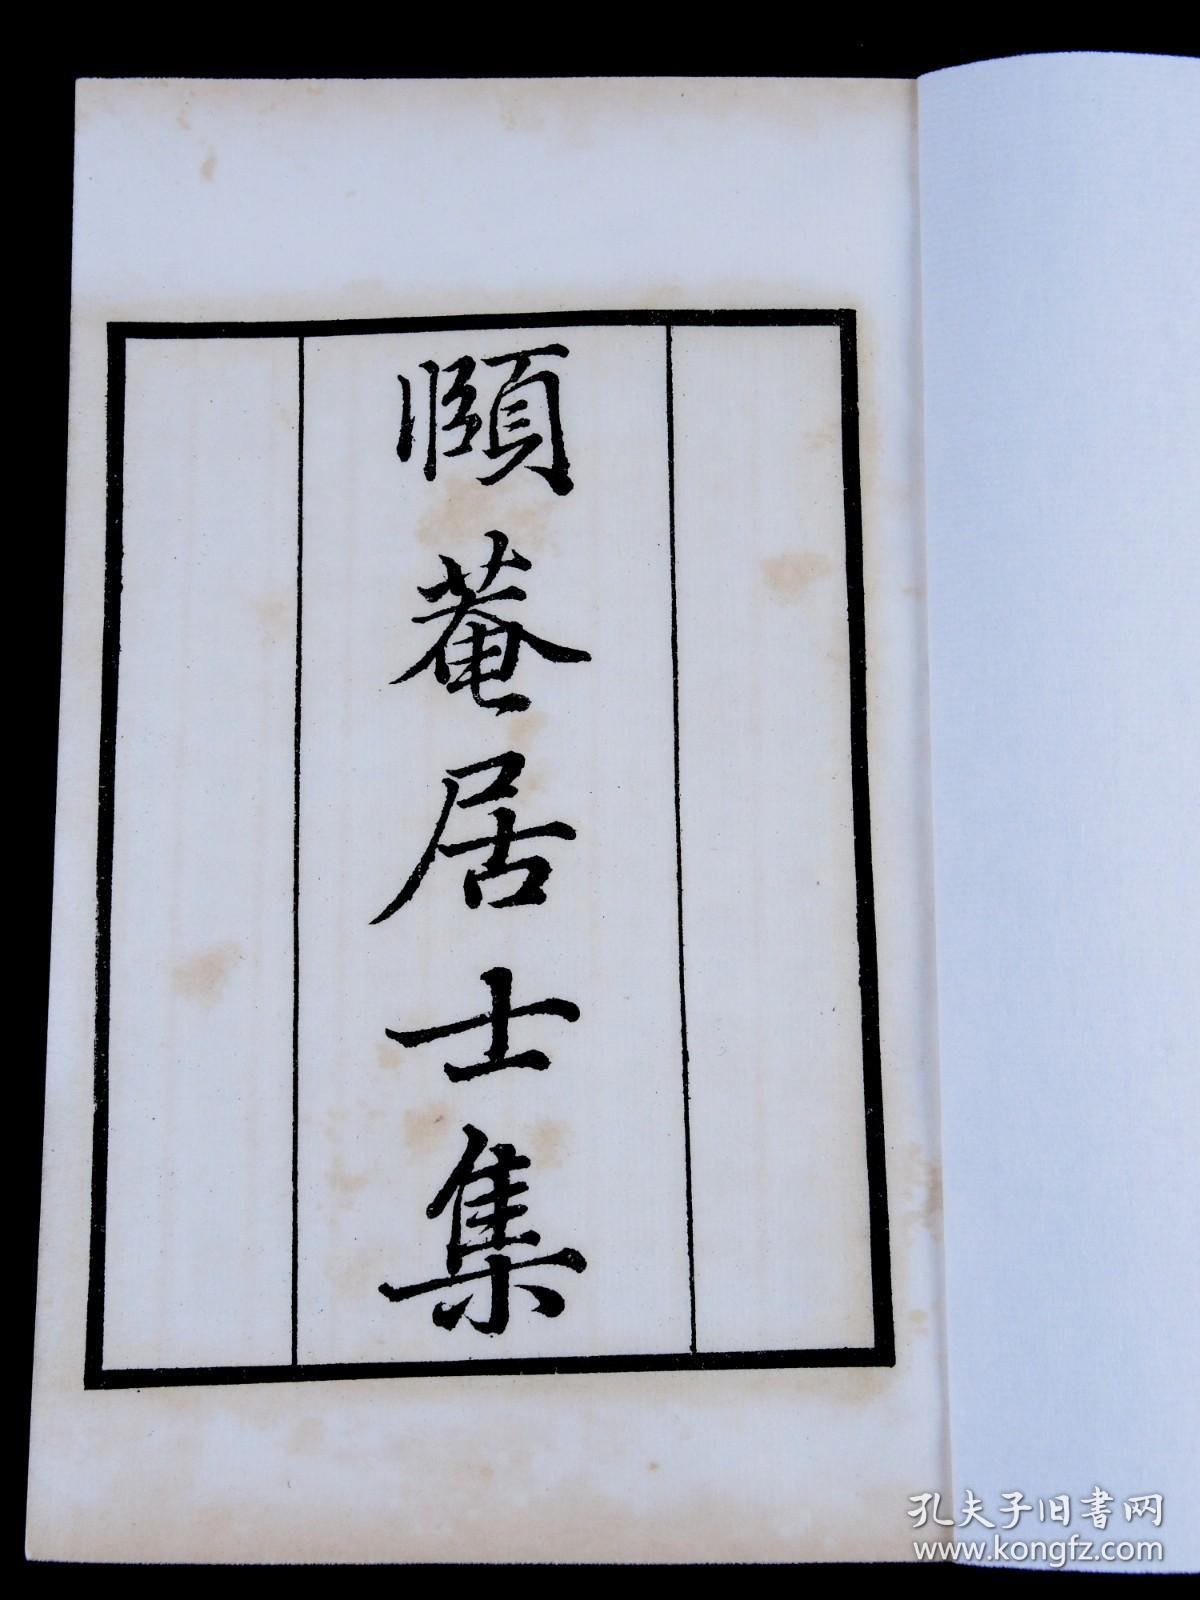 頤菴居士集
孔夫子旧書网
www.kongfz.com